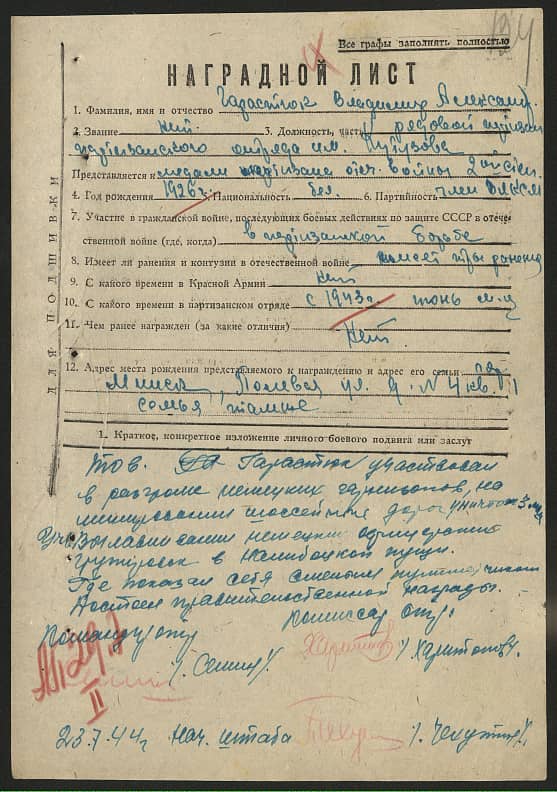 194
Все графы заполнять полностью
НАГРАДНОЙ ЛИСТ
1. Фамилия, имя и отчество Гарастюк Владимир Александр.
2. Звание нет. 3. Должность, часть рядовой
партизанского отряда им. Кутузова
Представляется к медали партизана отеч. войны 2ой степ.
4. Год рождения 1926г. 5. Национальность бел. 6. Партийность член ВЛКСМ
7. Участие в гражданской войне, последующих боевых действиях по защите СССР в отече-
ственной войне (где, когда) в партизанской борьбе
8. Имеет ли ранения и контузии в отечественной войне имеет три ранения
9. С какого времени в Красной Армии нет
10. С какого времени в партизанском отряде с 1943г. июнь м-ц
11. Чем ранее награжден (за какие отличия) Нет
12. Адрес места рождения представляемого к награждению и адрес его семьи гор.
Минск, Полевая ул. д. N 4 кв. 11
семья также
ДЛЯ ПОДШИВКИ
1. Краткое, конкретное изложение личного боевого подвига или заслуг
Тов. Гарастюк участвовал
в разгроме немецких гарнизонов, на
минировании шоссейных дорог
немецких
группировок в Налибоцкой пущи.
Где показал себя смелым
Достоин правительственной награды.
Командир отр. Комиссар отр.
/. Семин/. /. Харитонов/.
II
23.7.44г. Нач. штаба